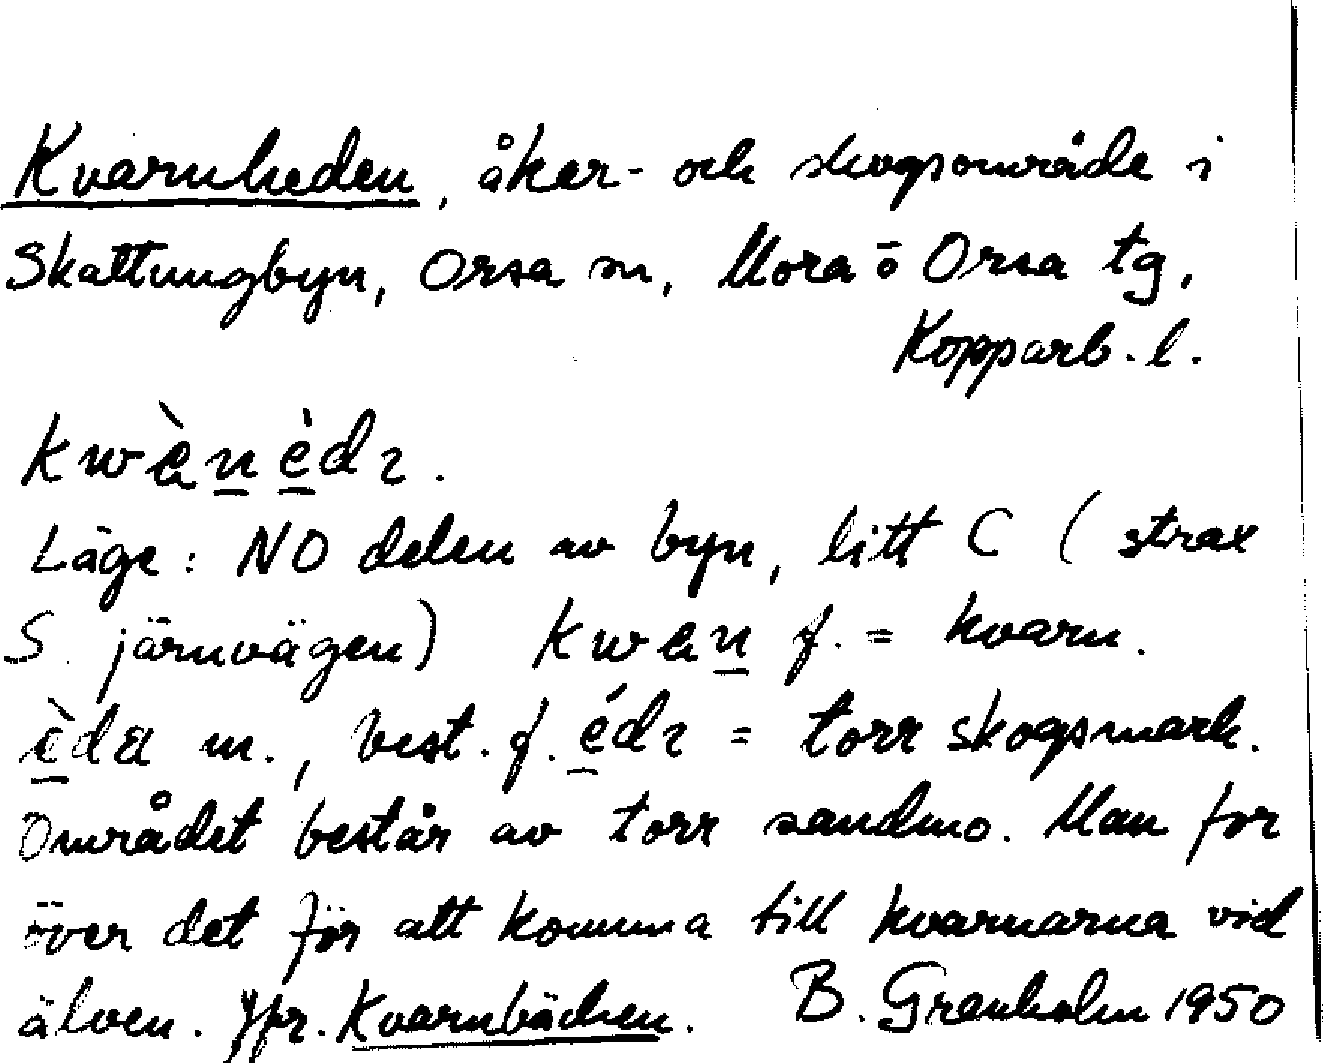 Kvarnheden, åker- och skogsområde i
Skattungbyn, Orsa sn, Mora o Orsa tg,
Kopparb. l.
kwèn̲è̲dɿ.
Läge: NO delen av byn, litt C (strax
S. järnvägen) kwan̲ f. = kvarn.
è̲da m., best. f. é̲dɿ = torr skogsmark.
Området består av torr sandmo. Man for
över det för att komma till kvarnarna vid
älven. Jfr. Kvarnbäcken. B. Granholm 1950